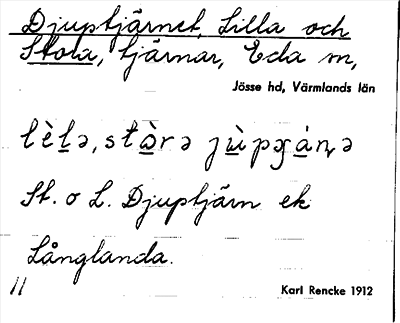 Djuptjärnet, Lilla och
Stora, tjärnar, Eda sn,
Jösse hd, Värmlands län
St. o L. Djuptjärn ek
Långlanda.
11
Karl Rencke 1912